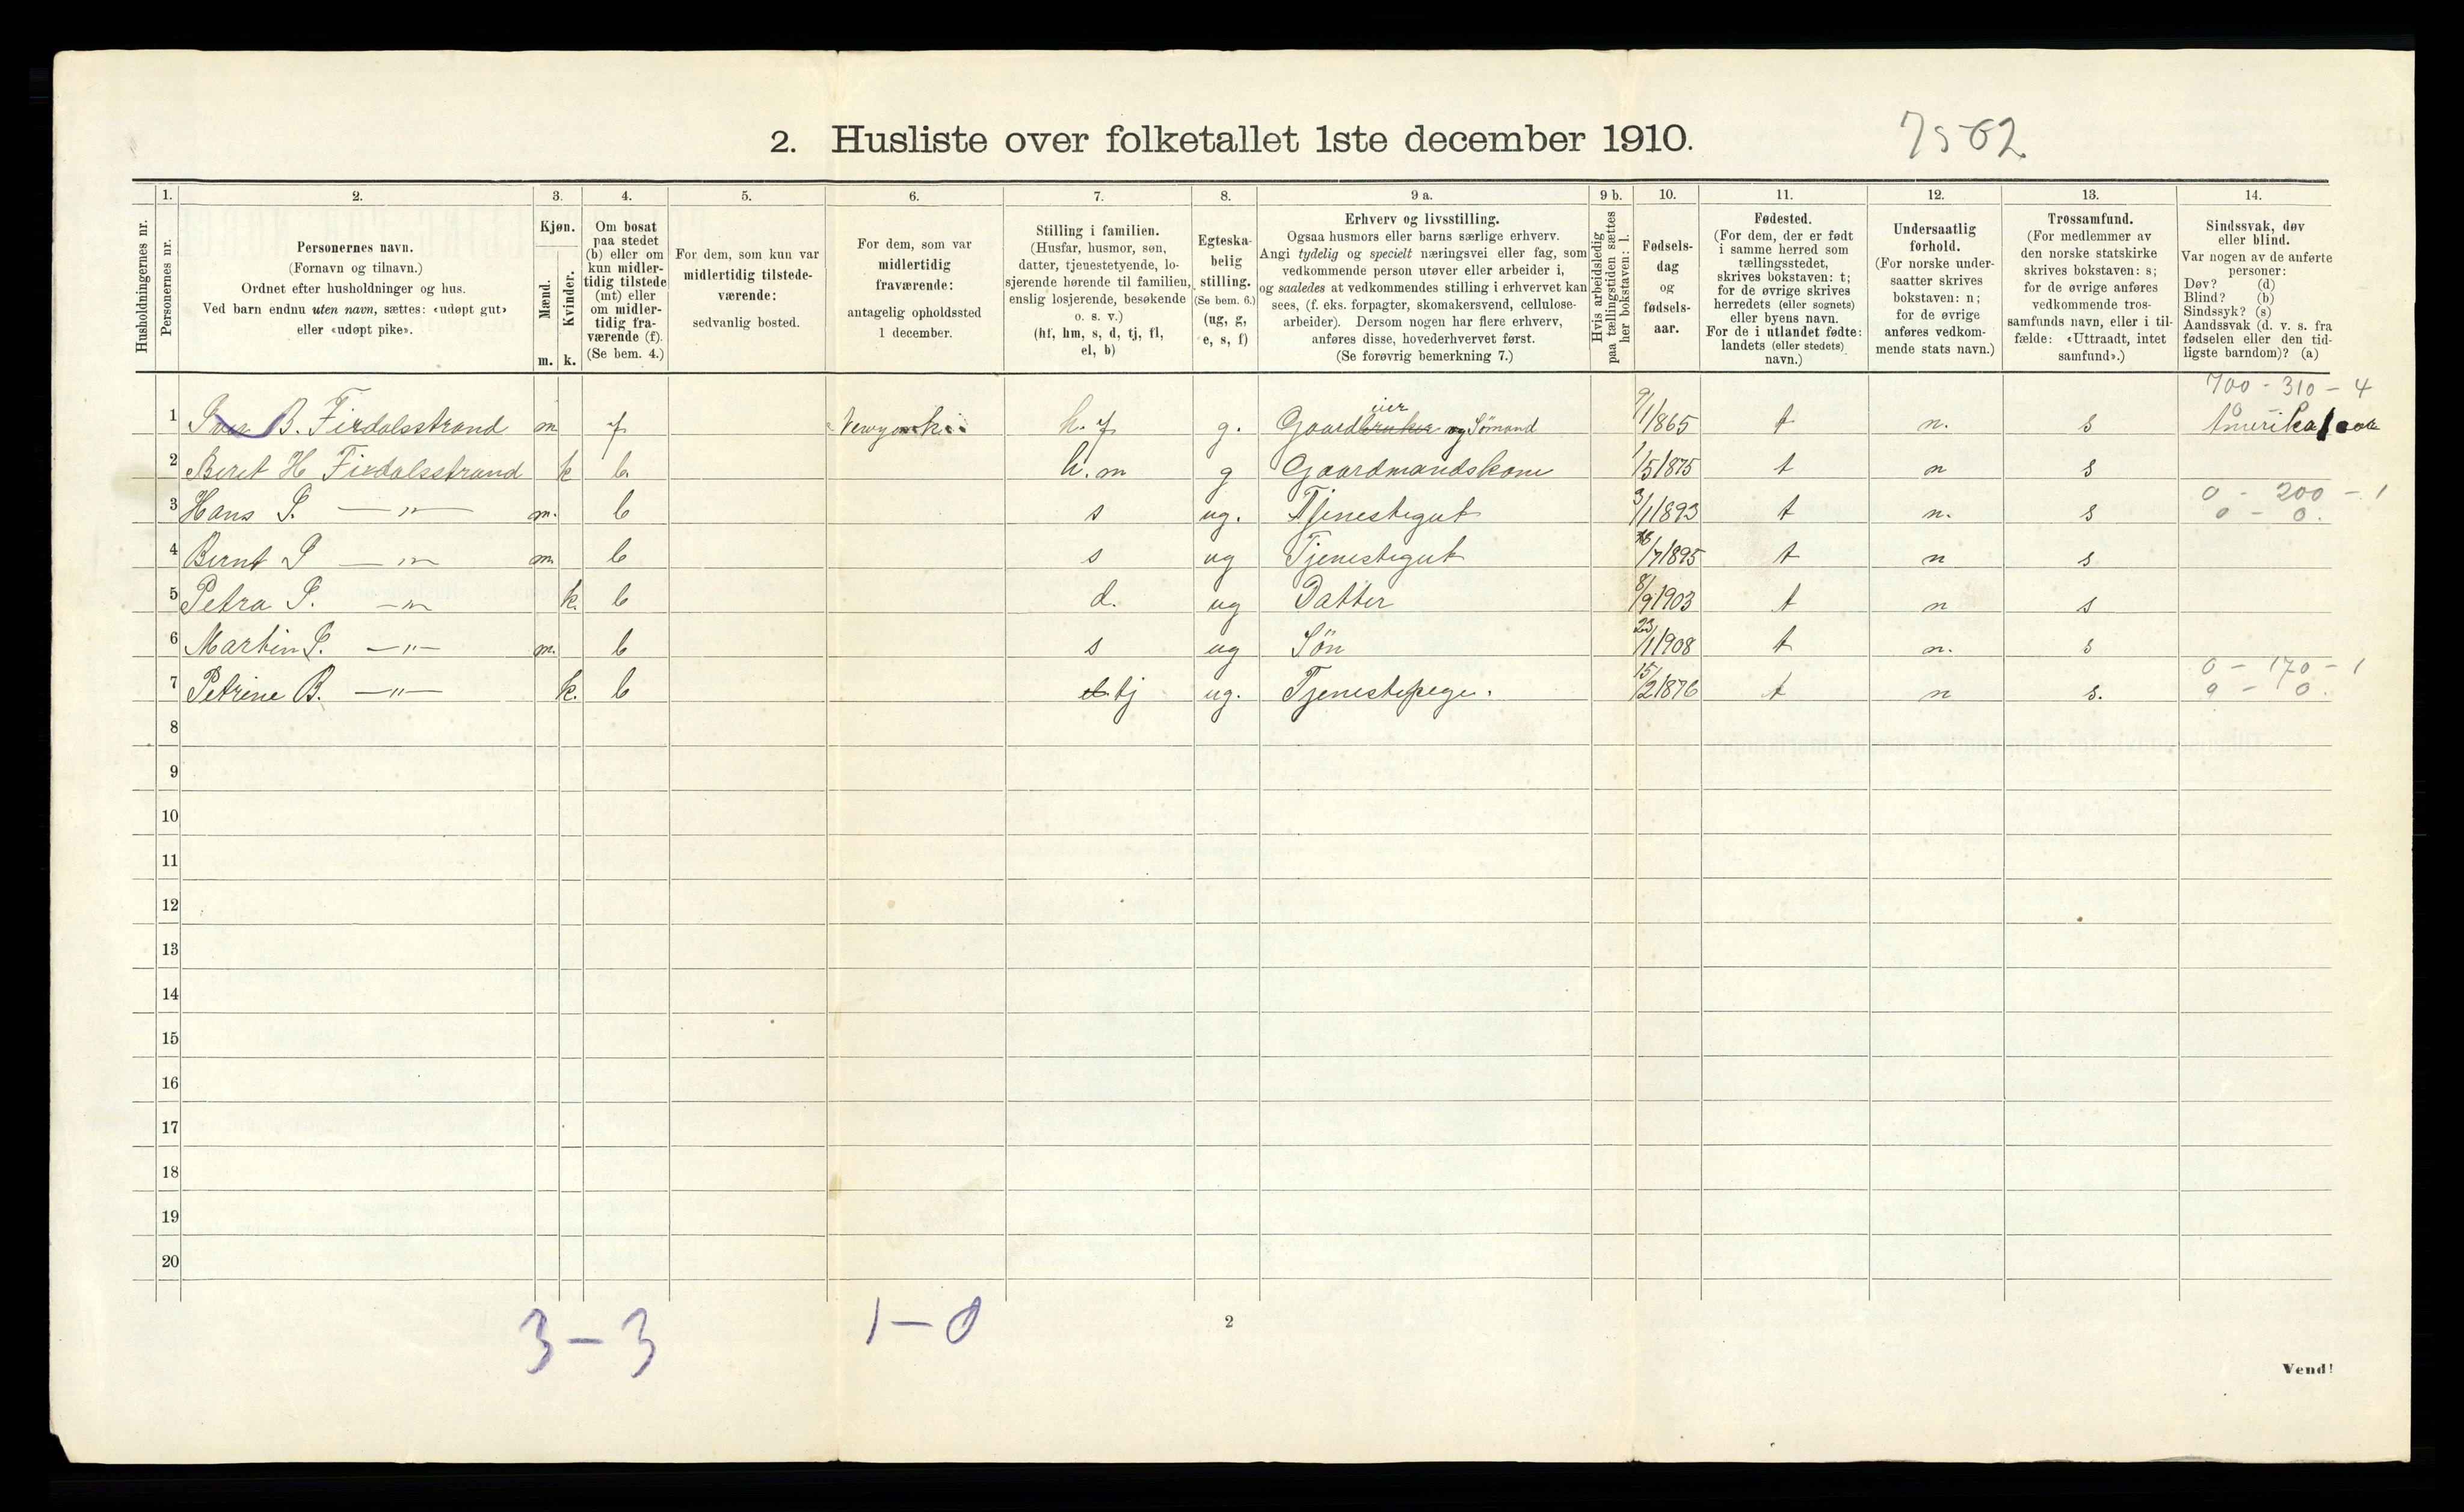 2. Husliste over folketallet 1ste december 1910.
7502
Husholdningernes nr.
1.
Personernes nr.
2.
Personernes navn.
(Fornavn og tilnavn.)
Ordnet efter husholdninger og hus.
Ved barn endnu uten navn, sættes: «udøpt gut»
eller «udøpt pike».
3.
Kjøn.
Mænd.
Kvinder.
m. k.
4.
Om bosat
paa stedet
(b) eller om
kun midler-
tidig tilstede
(mt) eller
om midler-
tidig fra-
værende (f).
(Se bem. 4.)
5.
For dem, som kun var
midlertidig tilstede-
værende:
sedvanlig bosted.
6.
For dem, som var
midlertidig
fraværende:
antagelig opholdssted
1 december.
7.
Stilling i familien.
(Husfar, husmor, søn,
datter, tjenestetyende, lo-
sjerende hørende til familien,
enslig losjerende, besøkende
o. s. v.)
(hf, hm, s, d, tj, fl,
el, b)
8.
Egteska-
belig
stilling.
(Se bem. 6.)
(ug, g,
e, s, f)
9 a.
Erhverv og livsstilling.
Ogsaa husmors eller barns særlige erhverv.
Angi tydelig og specielt næringsvei eller fag, som
vedkommende person utøver eller arbeider i,
og saaledes at vedkommendes stilling i erhvervet kan
sees, (f. eks. forpagter, skomakersvend, cellulose-
arbeider). Dersom nogen har flere erhverv,
anføres disse, hovederhvervet først.
(Se forøvrig bemerkning 7.)
9 b.
Hvis arbeidsledig
paa tællingstiden sættes
her bokstaven: l.
10.
Fødsels-
dag
og
fødsels-
aar.
11.
Fødested.
(For dem, der er født
i samme herred som
tællingsstedet,
skrives bokstaven: t;
for de øvrige skrives
herredets (eller sognets)
eller byens navn.
For de i utlandet fødte:
landets (eller stedets)
navn.)
12.
Undersaatlig
forhold.
(For norske under-
saatter skrives
bokstaven: n;
for de øvrige
anføres vedkom-
mende stats navn.)
13.
Trossamfund.
(For medlemmer av
den norske statskirke
skrives bokstaven: s;
for de øvrige anføres
vedkommende tros-
samfunds navn, eller i til-
fælde: «Uttraadt, intet
samfund».)
14.
Sindssvak, døv
eller blind.
Var nogen av de anførte
personer:
Døv? (d)
Blind? (b)
Sindssyk? (s)
Aandssvak (d. v. s. fra
fødselen eller den tid-
ligste barndom)? (a)
700 - 310 - 4
1 B. Fixdalsstrand m f Newyork h. f g. Gaardbruker eier og Sømand 9/1 1865 t n. s Amerika
2 Beret H Fixdalsstrand k b. h. m g Gaardmandskone 1/5 1875 t n s
0 - 200 - 1
3 Hans P. —"— m. b s ug. Tjenestegut 3/1 1893 t n. s 0 - 0.
4 Bernt P —"— m. b s ug Tjenestegut /7 1895 t n s
5 Petra P. —"— k. b d. ug Datter 8/9 1903 t n s
6 Martin P. —"— m. b s ug Søn 23/1 1908 t n. s
0 - 170 - 1
7 Petrine B. —"— k. b tj ug. Tjenestepige. 15/2 1876 t n s. 0 - 0.
8
9
10
11
12
13
14
15
16
17
18
19
20
3 - 3 1 - 0
2
Vend!